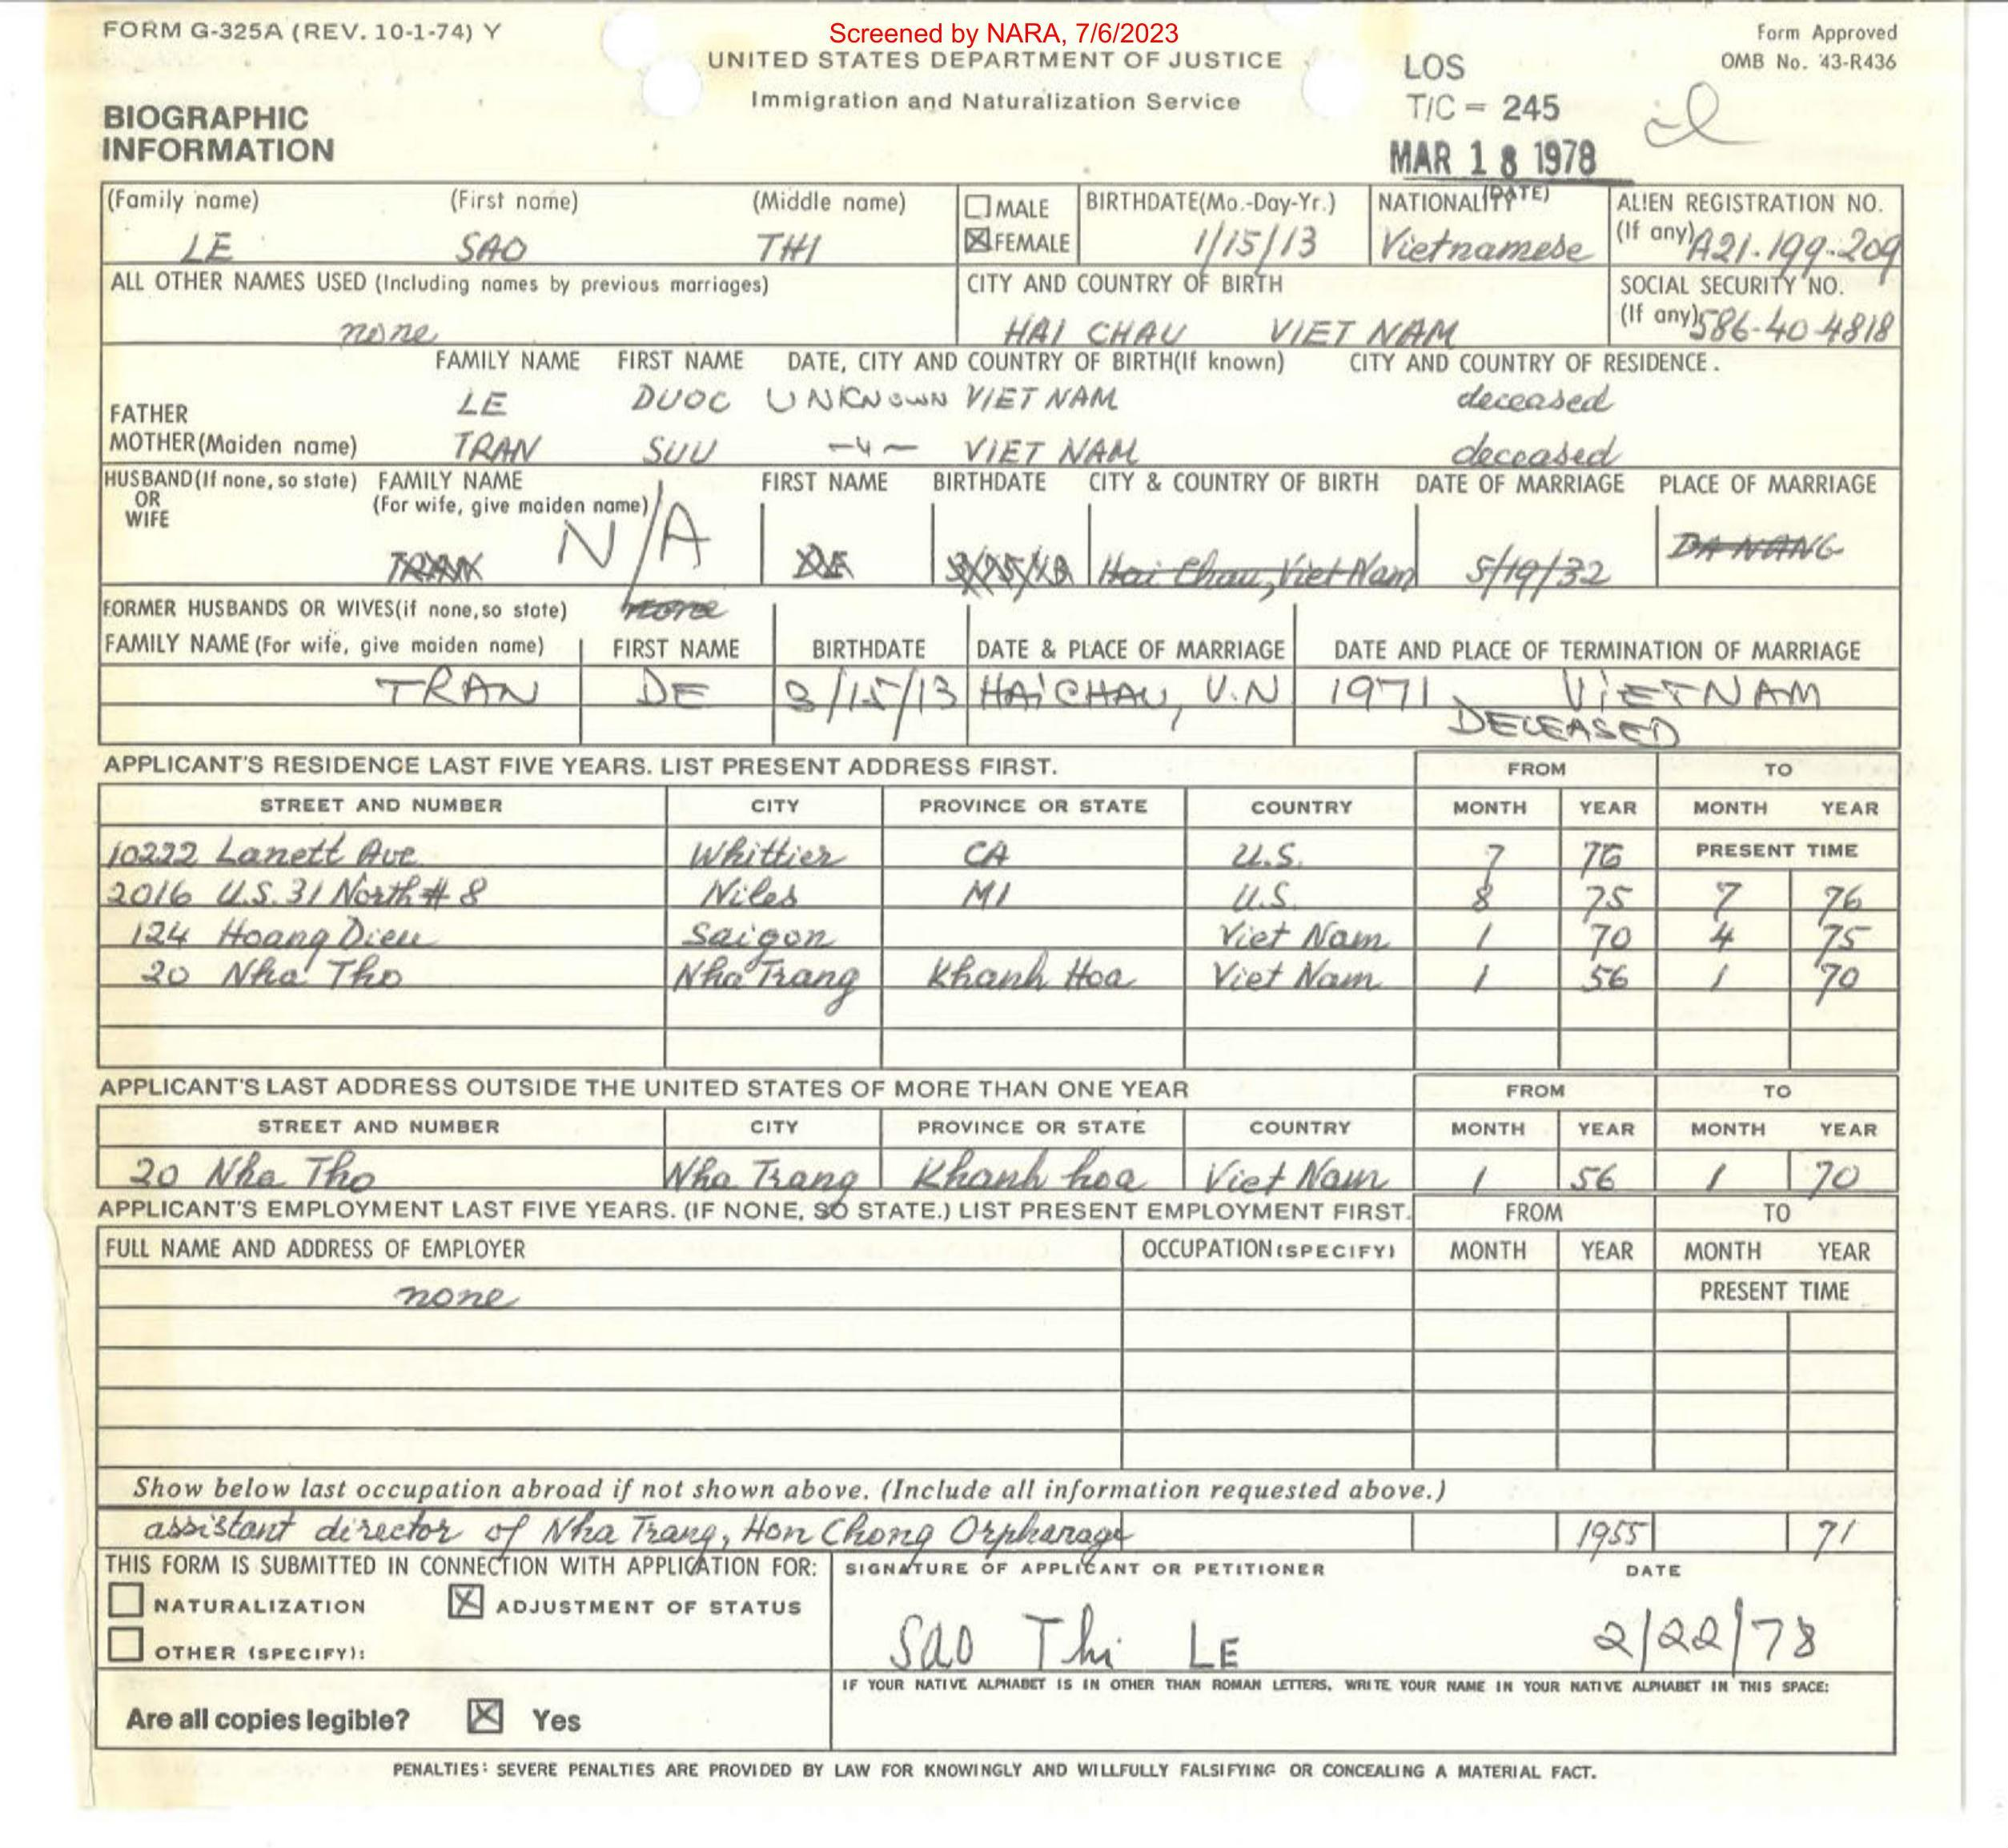 FORM G-325A (REV. 10-1-74) Y
Screened by NARA, 7/6/2023
Form Approved
OMB No. 43-R436
UNITED STATES DEPARTMENT OF JUSTICE
Immigration and Naturalization Service
LOS
T/C = 245
MAR 18 1978
(DATE)
BIOGRAPHIC
INFORMATION
(Family name) (First name) (Middle name) MALE BIRTHDATE(Mo.-Day-Yr.) NATIONALITY ALIEN REGISTRATION NO.
LE SAO THI FEMALE 1/15/13 Vietnamese (If any) A21-199-209
ALL OTHER NAMES USED (Including names by previous marriages) CITY AND COUNTRY OF BIRTH SOCIAL SECURITY NO.
none HAI CHAU VIET NAM (If any) 586-40-4818
FAMILY NAME FIRST NAME DATE, CITY AND COUNTRY OF BIRTH(If known) CITY AND COUNTRY OF RESIDENCE.
FATHER LE DUOC UNKNOWN VIET NAM deceased
MOTHER(Maiden name) TRAN SUU -4- VIET NAM deceased
HUSBAND(If none, so state) FAMILY NAME FIRST NAME BIRTHDATE CITY & COUNTRY OF BIRTH DATE OF MARRIAGE PLACE OF MARRIAGE
OR (For wife, give maiden name)
WIFE
TRAN N/A DE Hai Chau, Viet Nam 5/19/32 DA NANG
FORMER HUSBANDS OR WIVES(if none, so state) none
FAMILY NAME (For wife, give maiden name) FIRST NAME BIRTHDATE DATE & PLACE OF MARRIAGE DATE AND PLACE OF TERMINATION OF MARRIAGE
TRAN DE 3/15/13 HAI CHAU, V.N 1971 VIETNAM
DECEASED
APPLICANT'S RESIDENCE LAST FIVE YEARS. LIST PRESENT ADDRESS FIRST. FROM TO
STREET AND NUMBER CITY PROVINCE OR STATE COUNTRY MONTH YEAR MONTH YEAR
10222 Lanett Ave Whittier CA U.S. 7 76 PRESENT TIME
2016 U.S. 31 North # 8 Niles MI U.S. 8 75 7 76
124 Hoang Dieu Saigon Viet Nam 1 70 4 75
20 Nha Tho Nha Trang Khanh Hoa Viet Nam 1 56 1 70
APPLICANT'S LAST ADDRESS OUTSIDE THE UNITED STATES OF MORE THAN ONE YEAR FROM TO
STREET AND NUMBER CITY PROVINCE OR STATE COUNTRY MONTH YEAR MONTH YEAR
20 Nha Tho Nha Trang Khanh hoa Viet Nam 1 56 1 70
APPLICANT'S EMPLOYMENT LAST FIVE YEARS. (IF NONE, SO STATE.) LIST PRESENT EMPLOYMENT FIRST. FROM TO
FULL NAME AND ADDRESS OF EMPLOYER OCCUPATION (SPECIFY) MONTH YEAR MONTH YEAR
none PRESENT TIME
Show below last occupation abroad if not shown above. (Include all information requested above.)
assistant director of Nha Trang, Hon Chong Orphanage 1955 71
THIS FORM IS SUBMITTED IN CONNECTION WITH APPLICATION FOR: SIGNATURE OF APPLICANT OR PETITIONER DATE
NATURALIZATION ADJUSTMENT OF STATUS
OTHER (SPECIFY): Sao Thi LE 2/22/78
IF YOUR NATIVE ALPHABET IS IN OTHER THAN ROMAN LETTERS, WRITE YOUR NAME IN YOUR NATIVE ALPHABET IN THIS SPACE:
Are all copies legible? Yes
PENALTIES: SEVERE PENALTIES ARE PROVIDED BY LAW FOR KNOWINGLY AND WILLFULLY FALSIFYING OR CONCEALING A MATERIAL FACT.